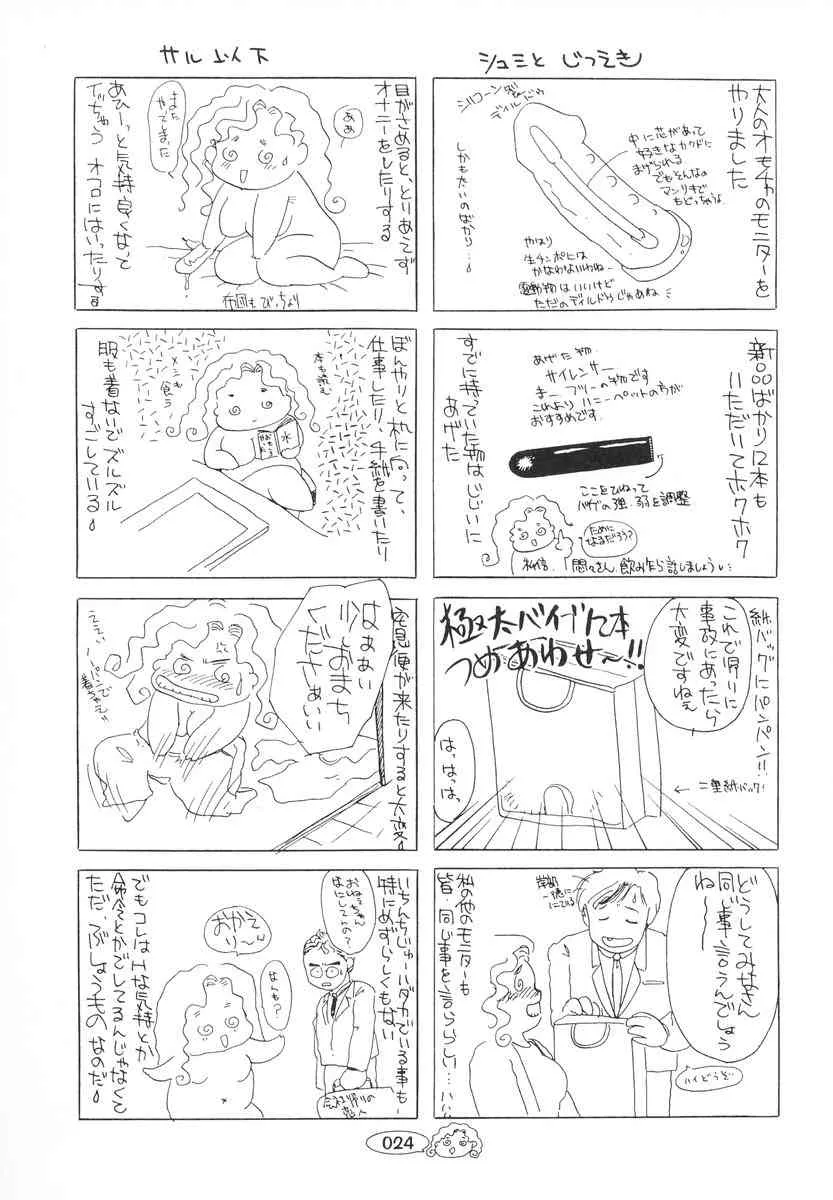 シュミと じつえき
大人のオモチャのモニターを
やりました
シリコーン製
ディルドゥ
中に芯があって
好きなカクドに
まげられる
でもそんなの
マンリキで
もどっちゃうよ
しかも太いのばかり…
やはり
生チンポには
かなわないわね〜
電動物はいいけど
ただのディルドぅじゃあね
新品ばかり12本も
いただいてホクホク
あげた物
サイレンサー
これより ハニーペットの方が
おすすめです
ここをひねって
バイブの強・弱を調整
すでに持っていた物はじじいに
あげた
ために
なるだろう?
私信.
悶々さん、飲み乍ら話しましょう
紙バッグにパンパン!!
これで帰りに
事故にあったら
大変ですねぇ
極太バイブ12本
つめあわせ〜!!
はっはっは、
←二重紙バック!
どうしてみなさん
同じ事言うんでしょう
ねー
ハイどうぞ
私の他のモニターも
皆、同じ事を言うらしい…ハハ
サル以下
目がさめると、とりあえず
オナニーをしたりする
ああ
また
やってしまった
あひーっと気持良くなって
イッちゃう オフロにはいったりする
布団もびっちょり
ぼんやりと机に向って、
仕事したり 手紙を書いたり
本も読む
水
メシも
食う
服も着ないで ズルズル
すごしている
宅急便が来たりすると大変
はぁぁい
少しおまち
くださぁいい
ええい
パンツで
着ちゃえ
いちんちじゅーハダカでいる事も
特にめずらしくもない
おねえちゃん
なにしてんの?
会社帰りの
恋人
おかえ
り〜
なんも?
でもコレはHな気持とか
命令とかでしてるんじゃなくて
ただ、ぶしょうもの なのだ
024